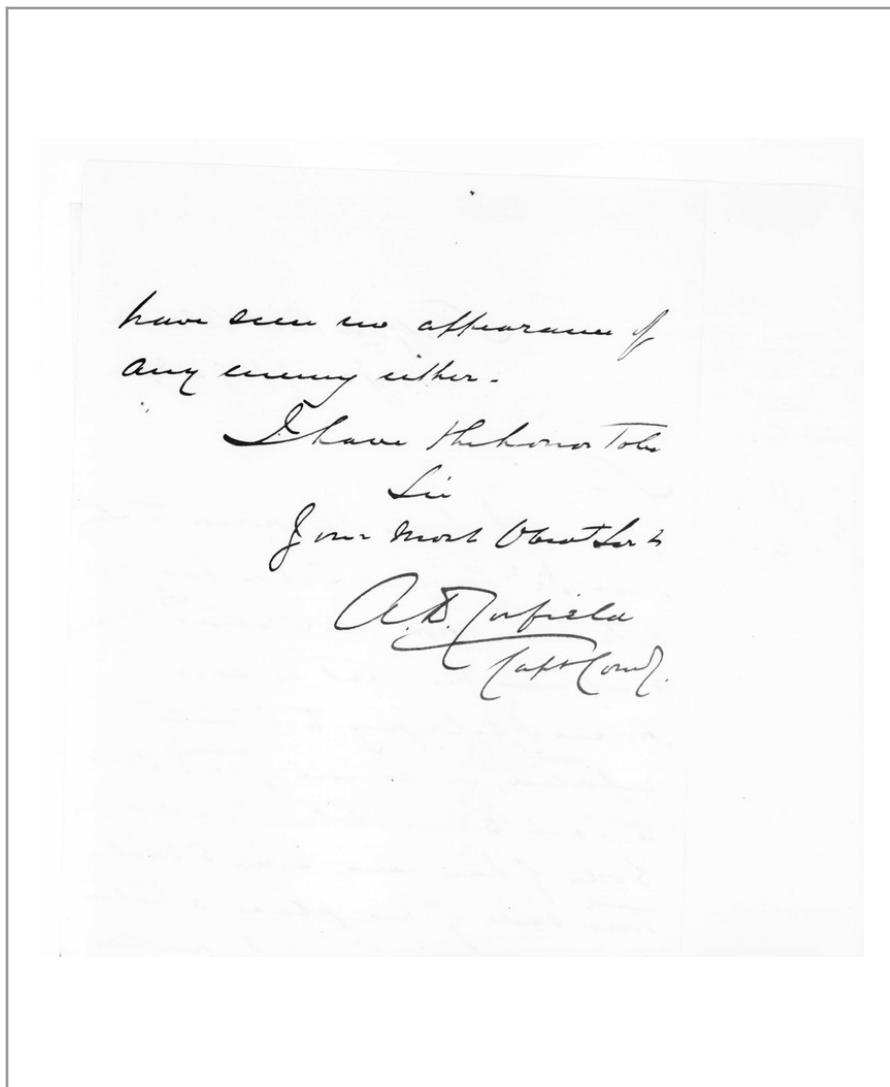 have seen no appearance of
any enemy either.
I have the honor To be
Sir
Your Most Obedt Servt
A. D.
Capt Comd.